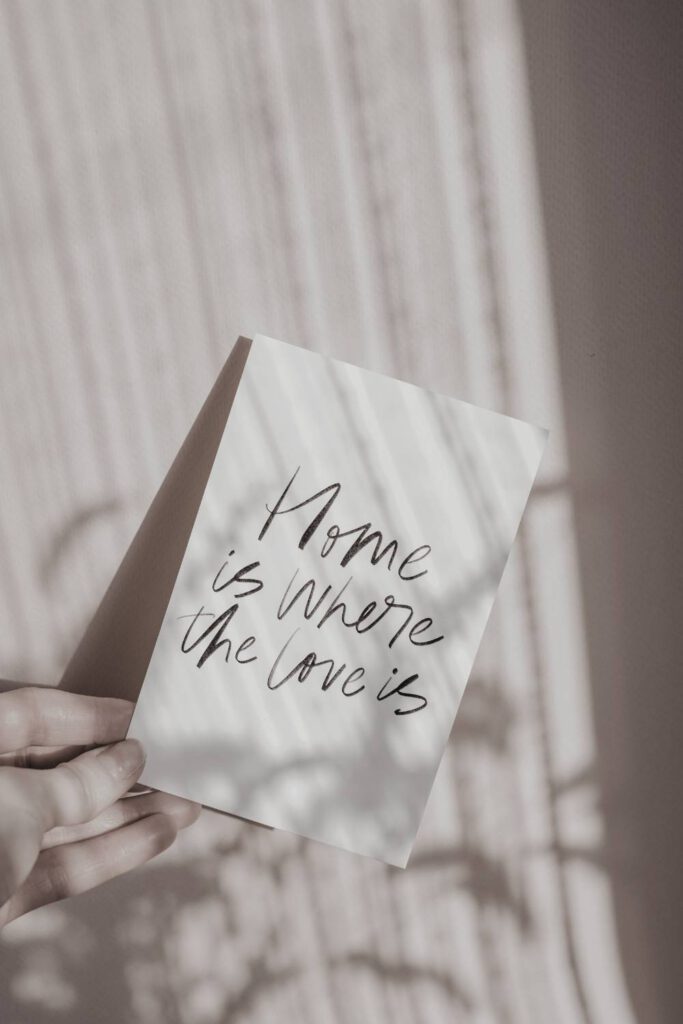 Home
is where
the love is